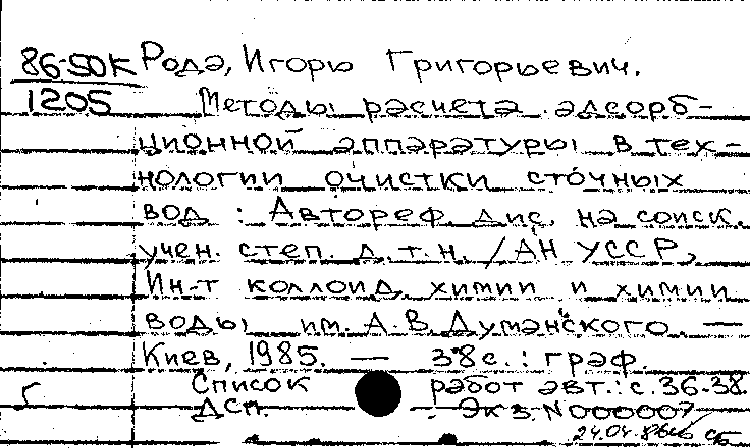 86-50К Родэ, Игорь Григорьевич.
1205 Методы расчета адсорб-
ционной аппаратуры в тех-
нологии очистки сточных
вод : Автореф. дис. на соиск.
учен. степ. д.т.н. / АН УССР,
Ин-т коллоид. химии и химии
воды им. А.В. Думанского. —
Киев, 1985. — 38 с. : граф.
Список работ авт.: с. 36-38.
ДСП. Экз. N 000007
24.04.86